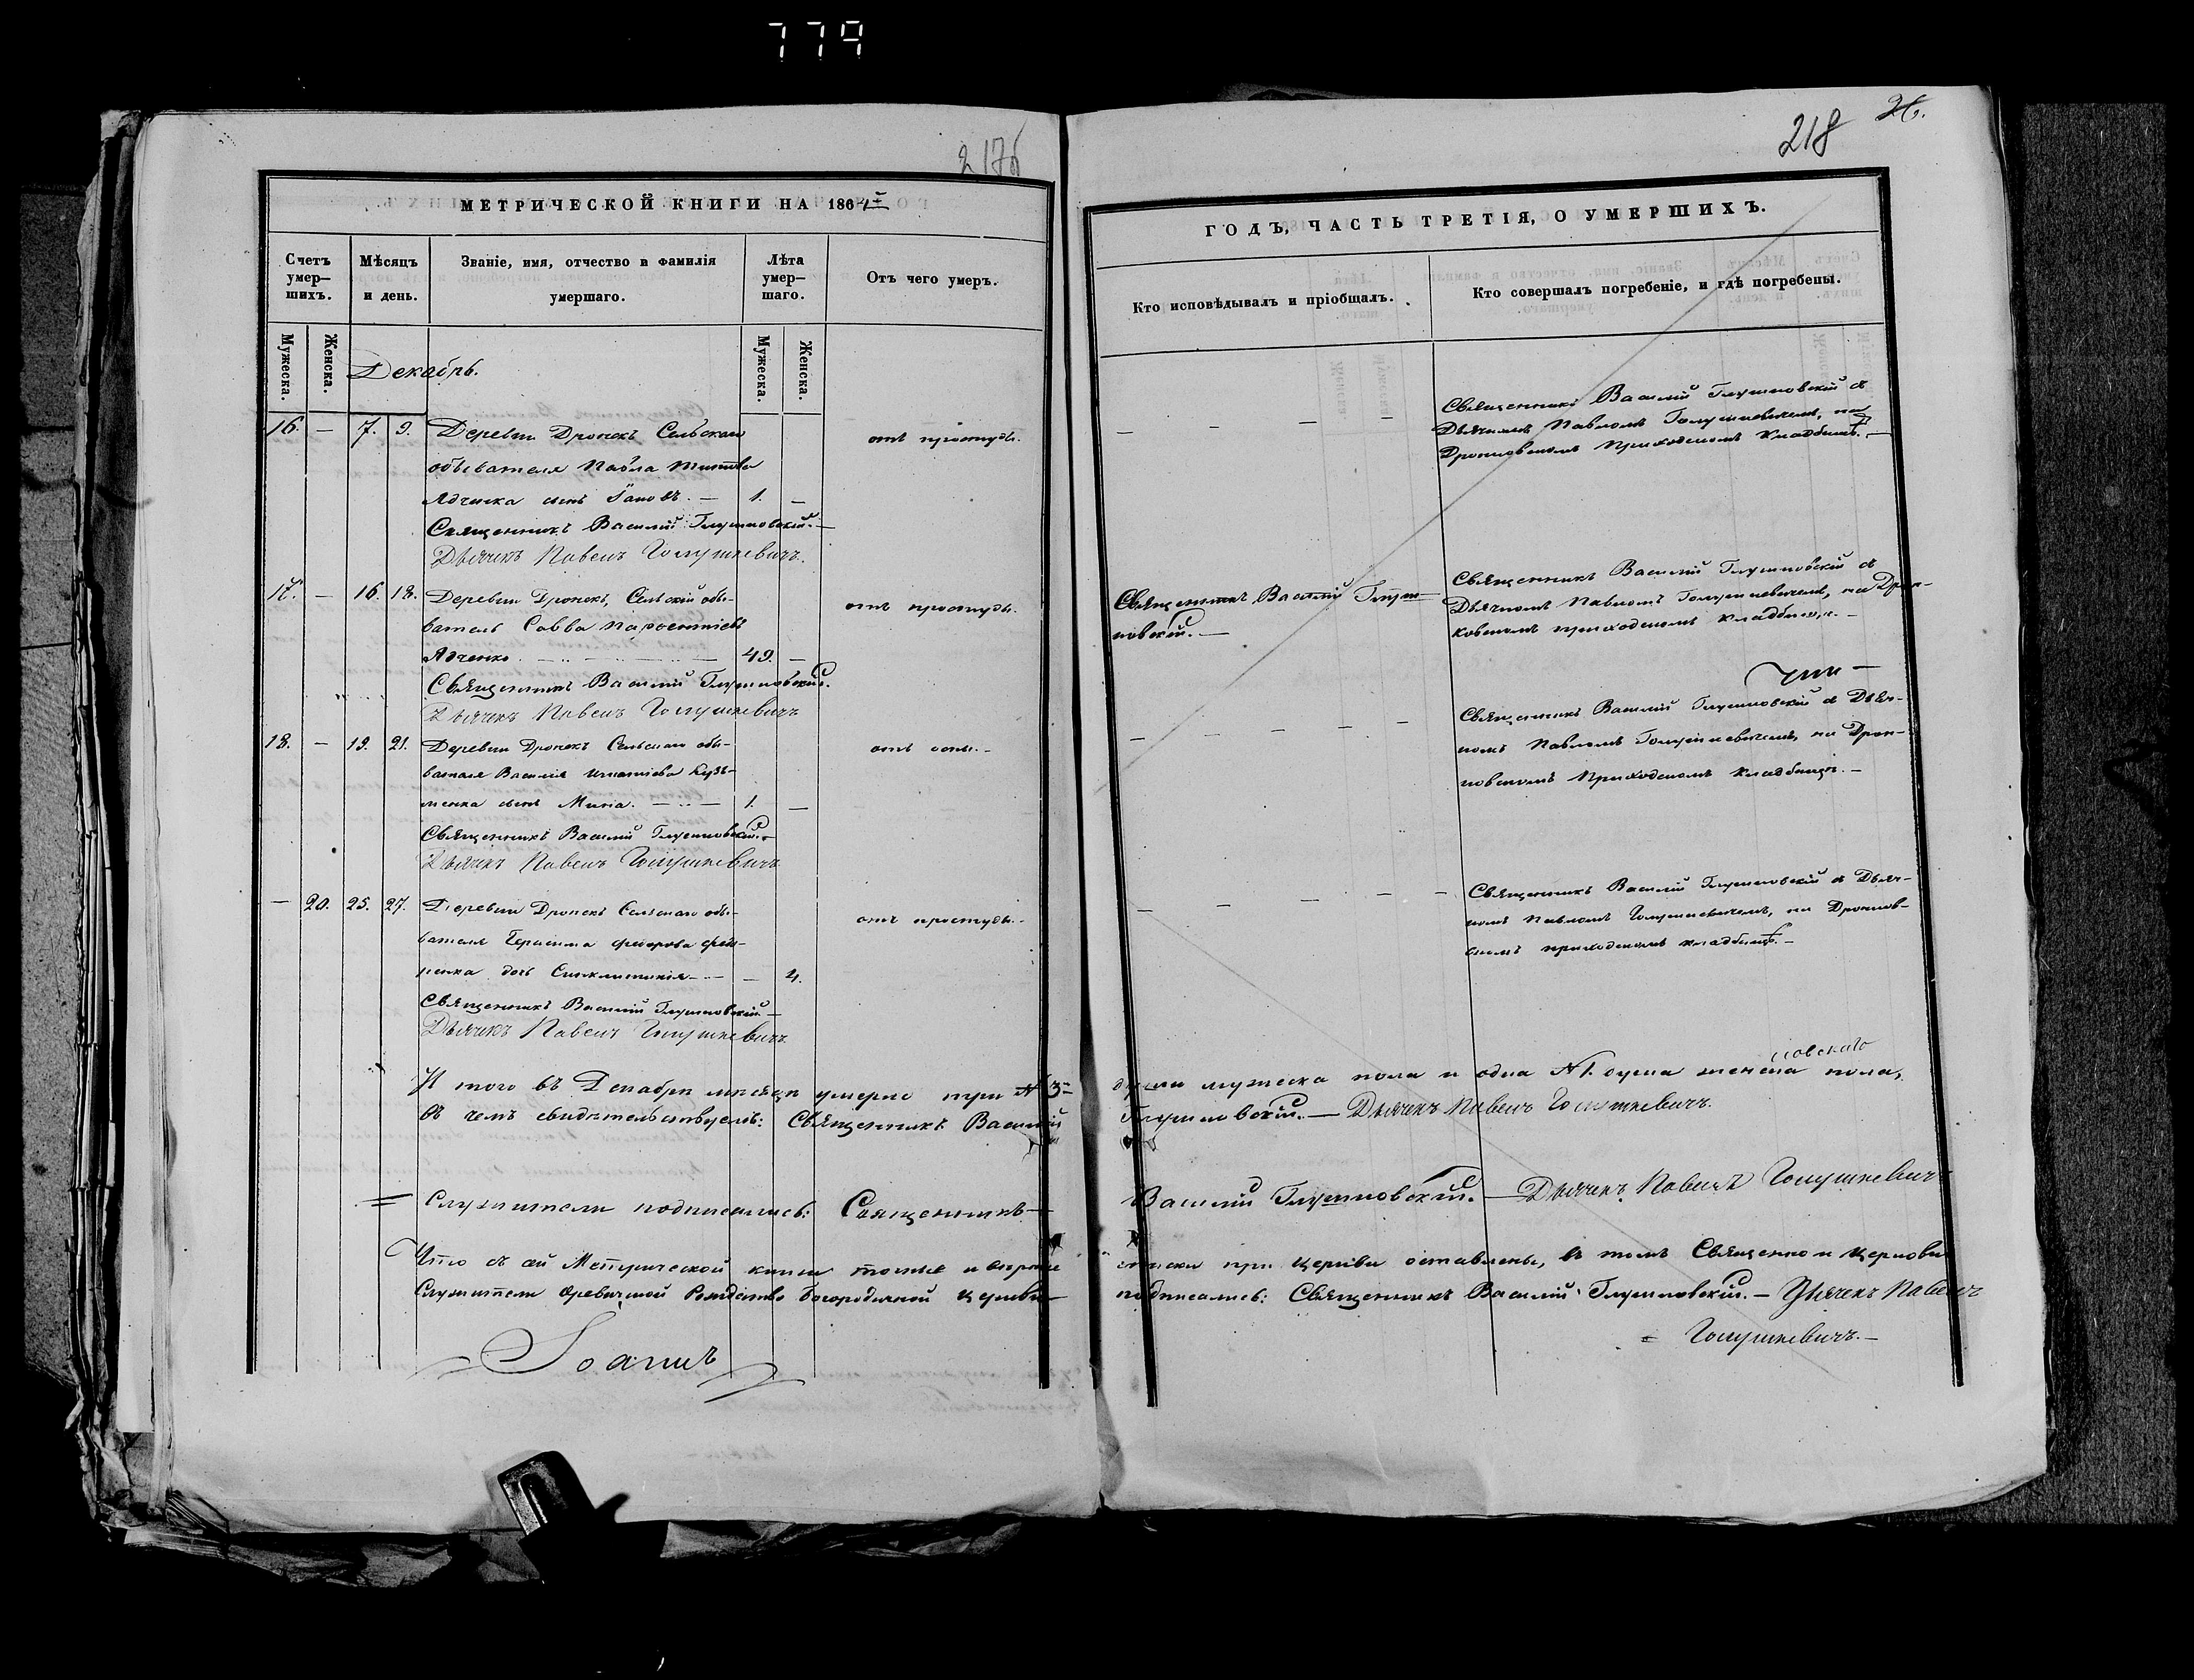 779
217б
МЕТРИЧЕСКОЙ КНИГИ НА 1864й
Счетъ умер-шихъ.
Мѣсяцъ и день.
Званіе, имя, отчество и фамилія умершаго.
Лѣта умер-шаго.
Отъ чего умеръ.
Мужеска.
Женска.
Мужеска.
Женска.
Декабрь.
16. — 7. 9. Деревни Дронекъ Сельскаго
отъ простуды.
обывателя Павла Титова
Ядченка сынъ Іаковъ. — 1. —
Священникъ Василій Глушновскій. —
Дьячекъ Павелъ Голушкевичъ.
17. — 16. 18. Деревни Дронекъ, Сельскій обы-
отъ простуды.
ватель Савва Пароентіевъ
Ядченко. — 49. —
Священникъ Василій Глушновскій.
Дьячекъ Павелъ Голушкевичъ
18. — 19. 21. Деревни Дронекъ Сельскаго обы-
отъ оспы. —
вателя Василія Игнатіева Кузь-
менка сынъ Мина. — 1. —
Священникъ Василій Глушновскій. —
Дьячекъ Павелъ Голушкевичъ
— 20. 25. 27. Деревни Дронекъ Сельскаго обы-
отъ простуды. —
вателя Герасима Федорова
ненка дочь Синклитикія — — 4.
Священникъ Василій Глушновскій —
Дьячекъ Павелъ Голушкевичъ
И того въ Декабрѣ мѣсяцѣ умерло три № 3 —
въ чемъ свидѣтельствуемъ: Священникъ Василій
= Служители подписались: Священникъ —
Что съ сей Метрической книги точные и вѣрные
Служители Рождество Богородичной церкви
Іоаннъ
218 26.
ГОДЪ, ЧАСТЬ ТРЕТІЯ, О УМЕРШИХЪ.
Кто исповѣдывалъ и пріобщалъ.
Кто совершалъ погребеніе, и гдѣ погребены.
— — — —
Священникъ Василій Глушновскій съ
Дьячкомъ Павломъ Голушкевичемъ, на
Дронковскомъ Приходскомъ Кладбищѣ. —
Священникъ Василій Глуш-
новскій. —
Священникъ Василій Глушновскій съ
Дьячкомъ Павломъ Голушкевичемъ, на Дрон-
ковскомъ приходскомъ кладбищѣ. —
— — — —
Священникъ Василій Глушновскій съ Дьяч-
комъ Павломъ Голушкевичемъ, на Дрон-
ковскомъ Приходскомъ Кладбищѣ. —
— — — — —
Священникъ Василій Глушновскій съ Дьяч-
комъ Павломъ Голушкевичемъ, на Дронков-
скомъ приходскомъ кладбищѣ. —
души мужеска пола и одна № 1. душа женска пола,
Глушновскій. — Дьячекъ Павелъ Голушкевичъ.
Василій Глушновскій. — Дьячекъ Павелъ Голушкевичъ
списки при церкви оставлены, въ томъ Священно и церковно
подписались: Священникъ Василій Глушновскій. — Дьячекъ Павелъ
= Голушкевичъ. —